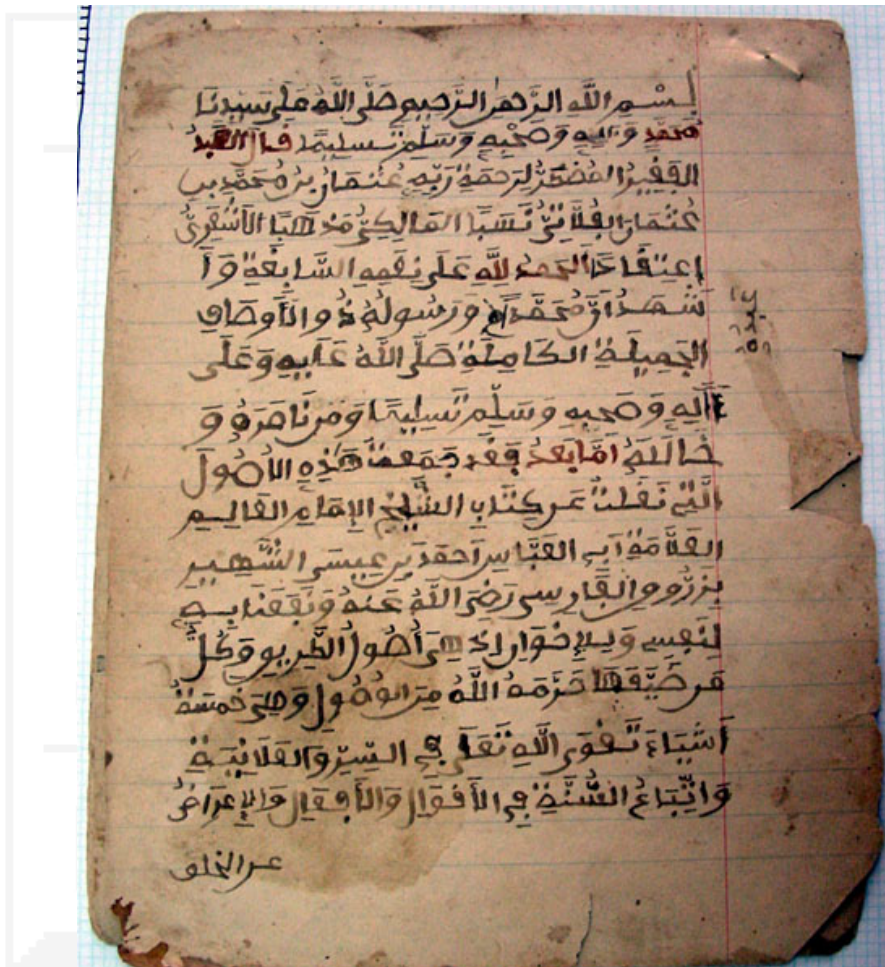 بِسْمِ اللَّهِ الرَّحْمٰنِ الرَّحِيمِ صَلَّى اللَّهُ عَلَى سَيِّدِنَا
مُحَمَّدٍ وَءَالِهِ وَصَحْبِهِ وَسَلَّمَ تَسْلِيمًا قَالَ الْعَبْدُ
الْفَقِيرُ الْمُضْطَرُّ لِرَحْمَةِ رَبِّهِ عُثْمَانُ بْنُ مُحَمَّدِ بْنِ
عُثْمَانَ الْفُلَّانِيُّ نَسَبًا الْمَالِكِيُّ مَذْهَبًا الْأَشْعَرِيُّ
اِعْتِقَادًا الْحَمْدُ لِلَّهِ عَلَى نِعَمِهِ السَّابِغَةِ وَأَ
شْهَدُ أَنَّ مُحَمَّدًا وَرَسُولُهُ ذُو الْأَوْصَافِ
عَبْدُهُ
الْجَمِيلَةِ الْكَامِلَةِ صَلَّى اللَّهُ عَلَيْهِ وَعَلَى
ءَالِهِ وَصَحْبِهِ وَسَلَّمَ تَسْلِيمًا وَمَنْ نَاصَرَهُ وَ
خَالَلَهُ أَمَّا بَعْدُ فَقَدْ جَمَعْتُ هَذِهِ الْأُصُولَ
الَّتِي نَقَلْتُ عَنْ كِتَابِ الشَّيْخِ الْإِمَامِ الْعَالِمِ
الْعَلَّامَةِ أَبِي الْعَبَّاسِ أَحْمَدَ بْنِ عِيسَى الشَّهِيرِ
بِزَرُّوقٍ الْفَارِسِي رَضِيَ اللَّهُ عَنْهُ وَنَفَعَنَا بِهِ
لِنَفْسِي وَلِإِخْوَانِ إِذْ هِيَ أُصُولُ الطَّرِيقِ وَكُلُّ
مَنْ ضَيَّعَهَا حَرَمَهُ اللَّهُ مِنَ الْوُصُولِ وَهِيَ خَمْسَةُ
أَشْيَاءَ تَقْوَى اللَّهِ تَعَلَى فِي السِّرِّ وَالْعَلَانِيَةِ
وَاتِّبَاعُ السُّنَّةِ فِي الْأَقْوَالِ وَالْأَفْعَالِ وَالْإِعْرَاضُ
عن الخلق